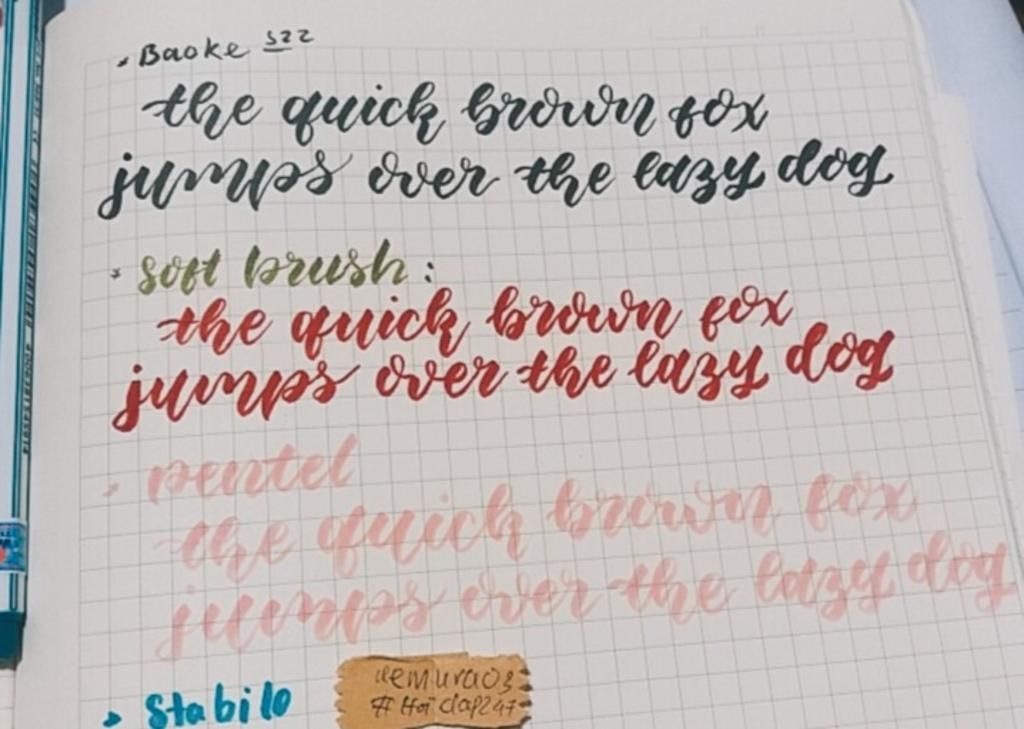 * Baoke S22
the quick brown fox
jumps over the lazy dog
* soft brush :
the quick brown fox
jumps over the lazy dog
* pentel
the quick brown fox
jumps over the lazy dog
* Stabilo
#Hoidap247